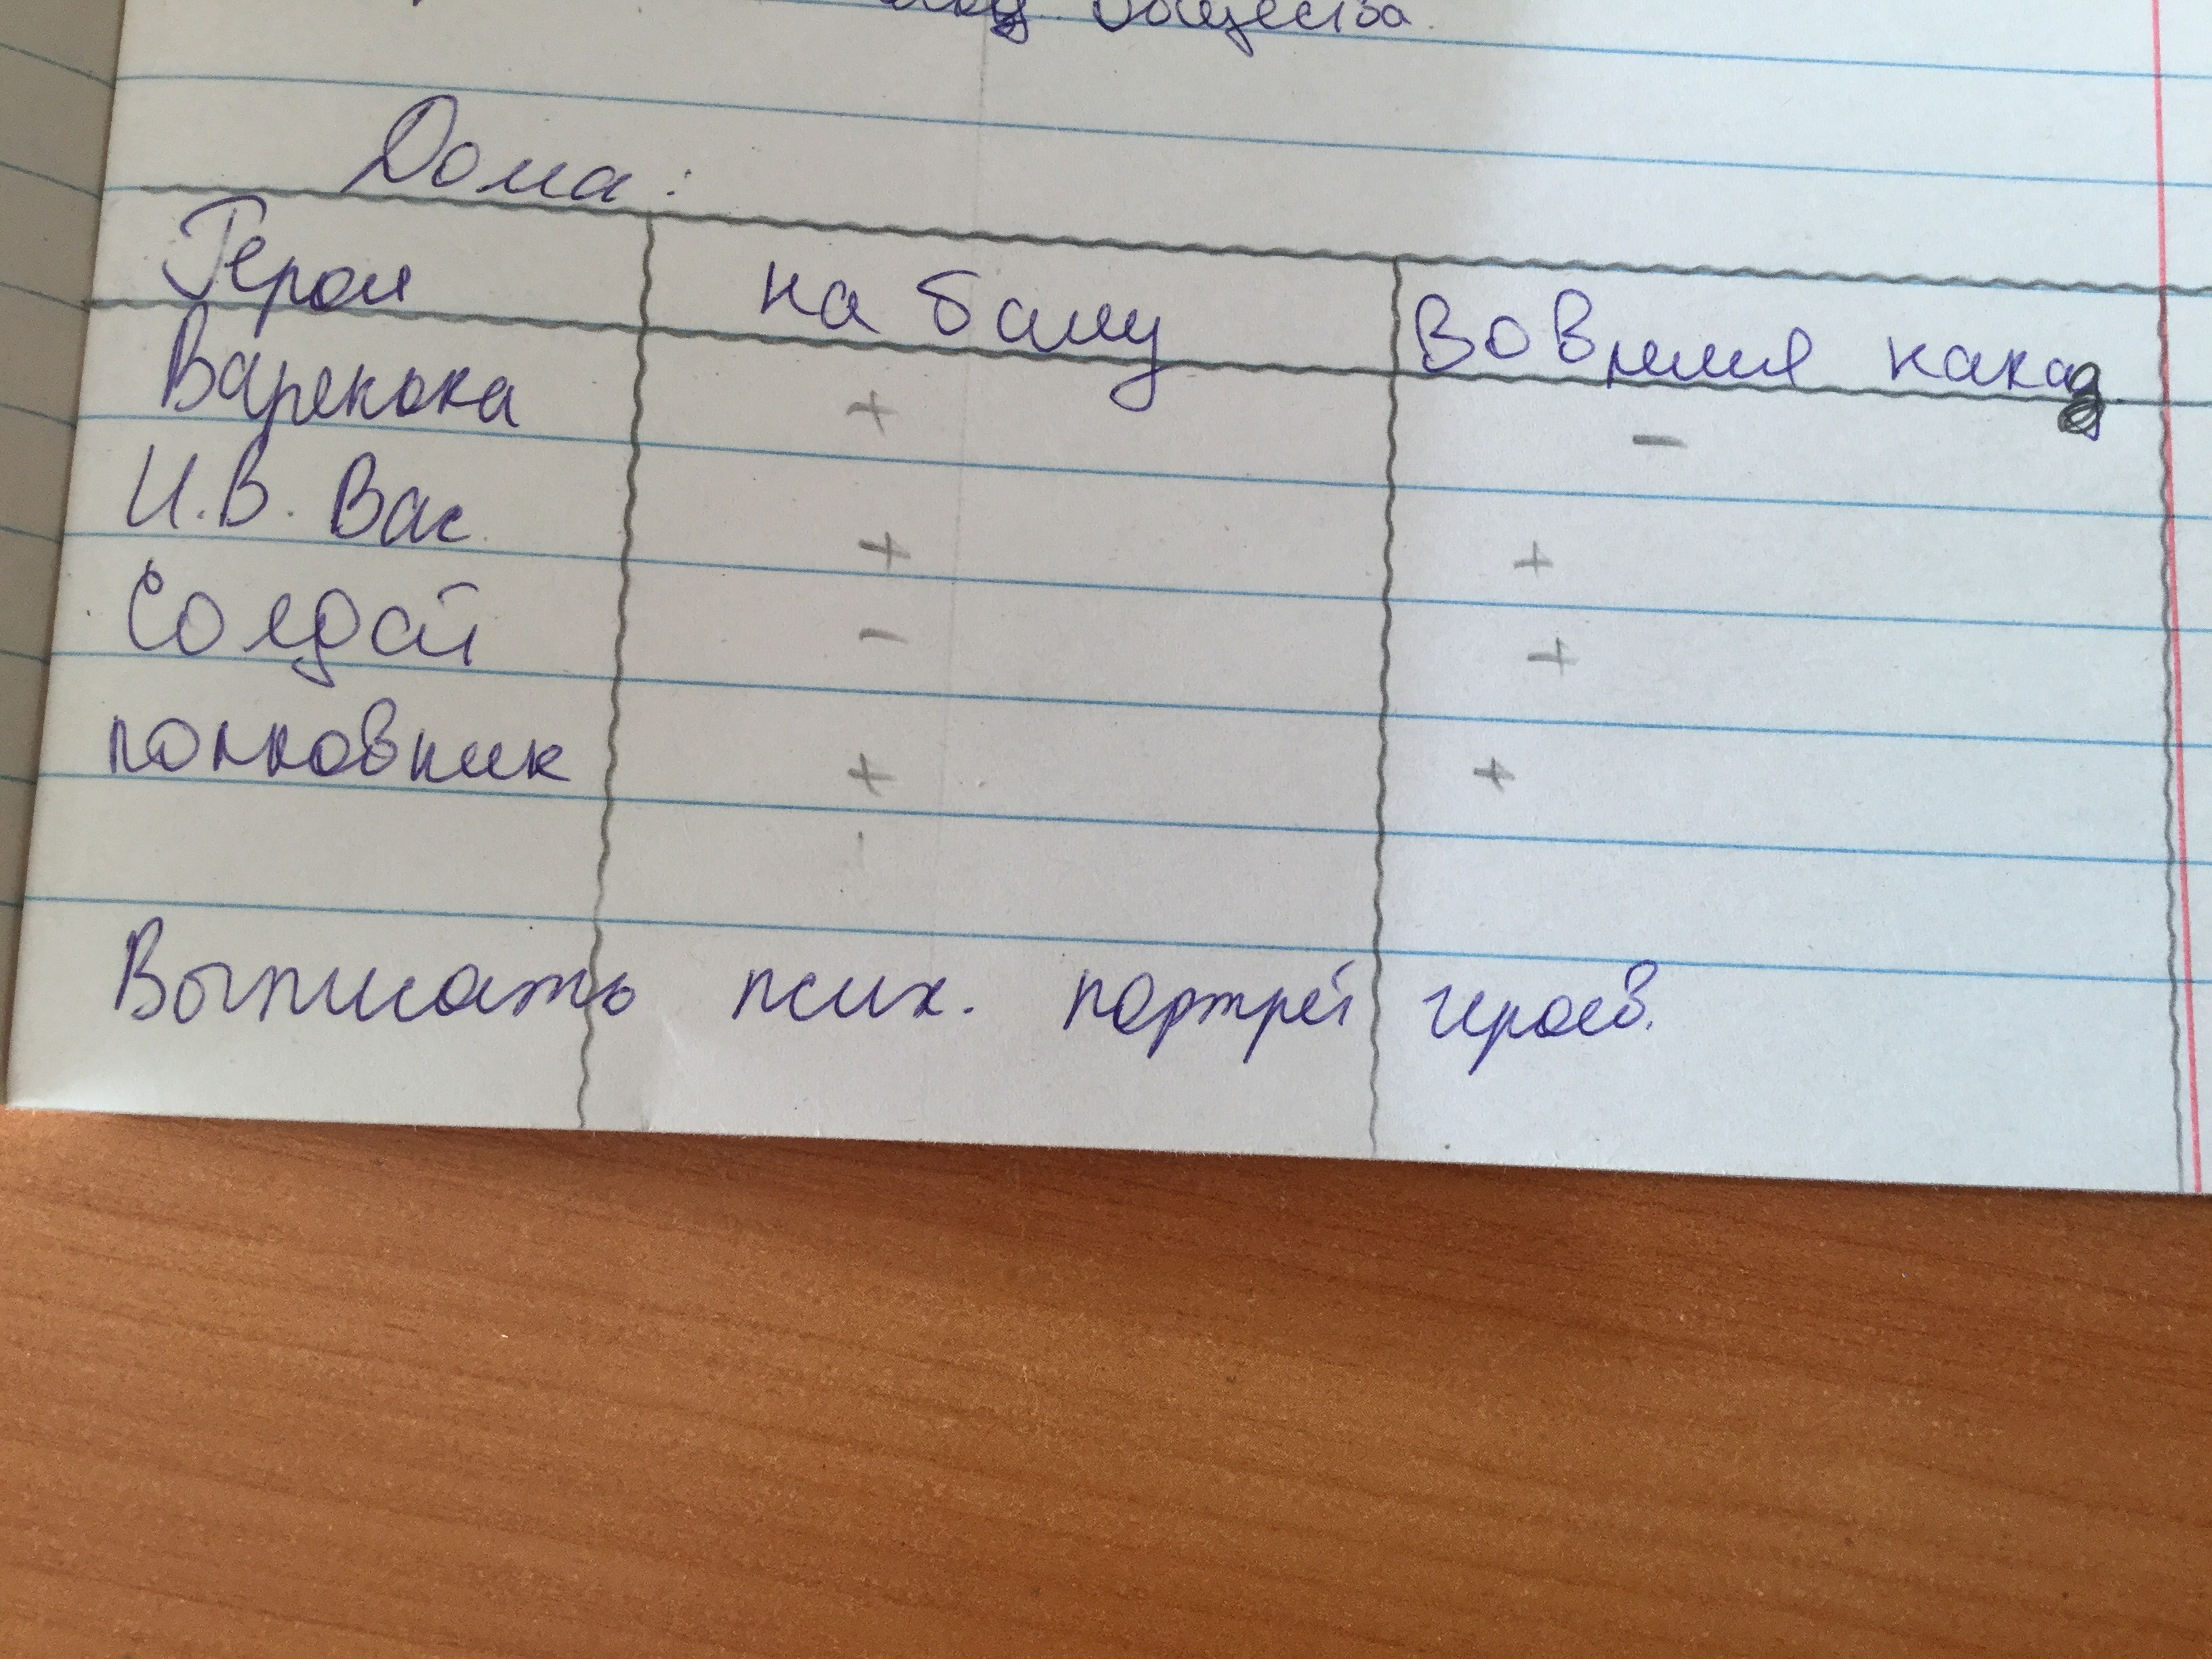 общества.
Дома:
Герои на балу Во время наказ
Варенька + -
И.В. Вас. + +
Солдат - +
полковник + +
Выписать псих. портрет героев.